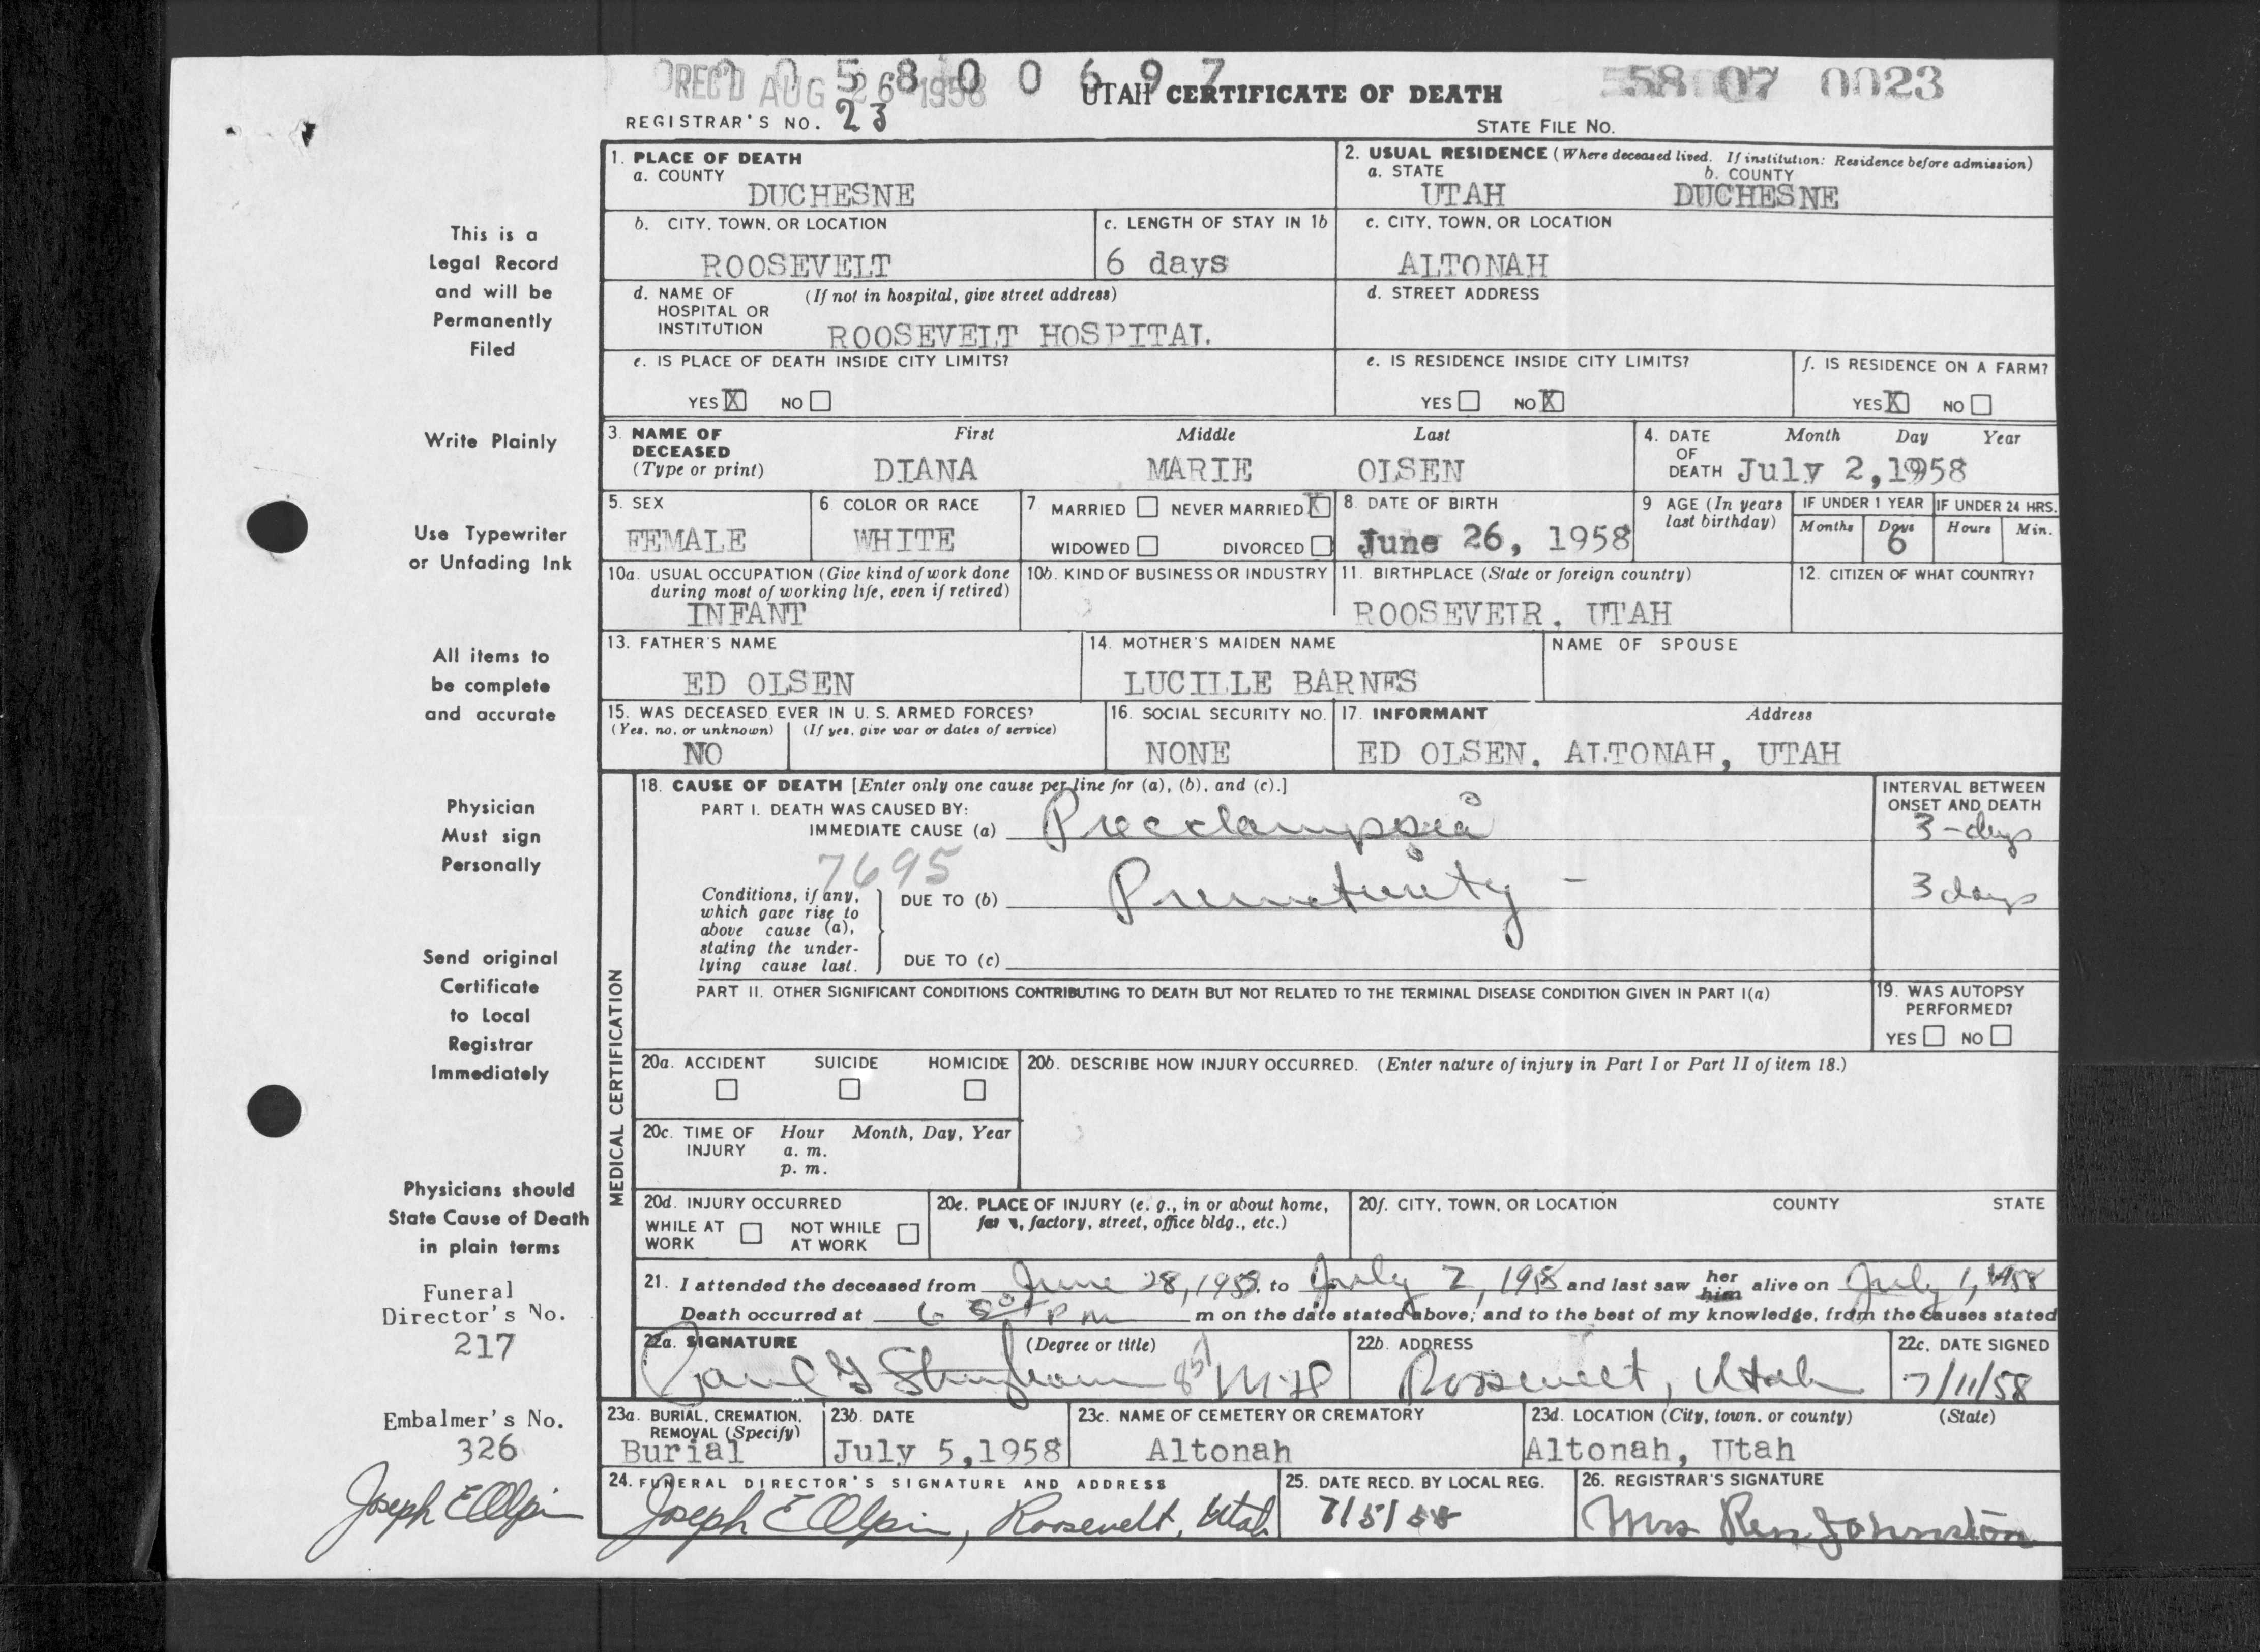 REC'D AUG 26 1958
0 0 5 8 0 0 6 9 7
58 07 0023
UTAH CERTIFICATE OF DEATH
REGISTRAR'S NO. 23
STATE FILE NO.
1. PLACE OF DEATH
a. COUNTY
DUCHESNE
2. USUAL RESIDENCE (Where deceased lived. If institution: Residence before admission)
a. STATE b. COUNTY
UTAH DUCHESNE
b. CITY, TOWN, OR LOCATION
ROOSEVELT
c. LENGTH OF STAY IN 1b
6 days
c. CITY, TOWN, OR LOCATION
ALTONAH
d. NAME OF HOSPITAL OR INSTITUTION (If not in hospital, give street address)
ROOSEVELT HOSPITAL
d. STREET ADDRESS
e. IS PLACE OF DEATH INSIDE CITY LIMITS?
YES X NO
e. IS RESIDENCE INSIDE CITY LIMITS?
YES NO X
f. IS RESIDENCE ON A FARM?
YES X NO
3. NAME OF DECEASED (Type or print)
First Middle Last
DIANA MARIE OLSEN
4. DATE OF DEATH Month Day Year
July 2, 1958
5. SEX
FEMALE
6 COLOR OR RACE
WHITE
7 MARRIED NEVER MARRIED X
WIDOWED DIVORCED
8. DATE OF BIRTH
June 26, 1958
9 AGE (In years last birthday)
IF UNDER 1 YEAR
Months Days
6
IF UNDER 24 HRS.
Hours Min.
10a. USUAL OCCUPATION (Give kind of work done during most of working life, even if retired)
INFANT
10b. KIND OF BUSINESS OR INDUSTRY
11. BIRTHPLACE (State or foreign country)
ROOSEVEIR, UTAH
12. CITIZEN OF WHAT COUNTRY?
13. FATHER'S NAME
ED OLSEN
14. MOTHER'S MAIDEN NAME
LUCILLE BARNES
NAME OF SPOUSE
15. WAS DECEASED EVER IN U. S. ARMED FORCES?
(Yes, no, or unknown) (If yes, give war or dates of service)
NO
16. SOCIAL SECURITY NO.
NONE
17. INFORMANT Address
ED OLSEN, ALTONAH, UTAH
MEDICAL CERTIFICATION
18. CAUSE OF DEATH [Enter only one cause per line for (a), (b), and (c).]
PART I. DEATH WAS CAUSED BY:
IMMEDIATE CAUSE (a) Preeclampsia
7695
Conditions, if any, which gave rise to above cause (a), stating the underlying cause last.
DUE TO (b) Prematurity -
DUE TO (c)
INTERVAL BETWEEN ONSET AND DEATH
3-days
3 days
PART II. OTHER SIGNIFICANT CONDITIONS CONTRIBUTING TO DEATH BUT NOT RELATED TO THE TERMINAL DISEASE CONDITION GIVEN IN PART I(a)
19. WAS AUTOPSY PERFORMED?
YES NO
20a. ACCIDENT SUICIDE HOMICIDE
20b. DESCRIBE HOW INJURY OCCURRED. (Enter nature of injury in Part I or Part II of item 18.)
20c. TIME OF INJURY Hour Month, Day, Year
a. m.
p. m.
20d. INJURY OCCURRED
WHILE AT WORK NOT WHILE AT WORK
20e. PLACE OF INJURY (e. g., in or about home, farm, factory, street, office bldg., etc.)
20f. CITY, TOWN, OR LOCATION COUNTY STATE
21. I attended the deceased from June 28, 1958, to July 2, 1958 and last saw her him alive on July 1, 1958
Death occurred at 6 PM m on the date stated above; and to the best of my knowledge, from the causes stated
22a. SIGNATURE (Degree or title)
Paul G Stringham M.D
22b. ADDRESS
Roosevelt, Utah
22c. DATE SIGNED
7/11/58
23a. BURIAL, CREMATION, REMOVAL (Specify)
Burial
23b. DATE
July 5, 1958
23c. NAME OF CEMETERY OR CREMATORY
Altonah
23d. LOCATION (City, town, or county) (State)
Altonah, Utah
24. FUNERAL DIRECTOR'S SIGNATURE AND ADDRESS
Joseph E Olpin, Roosevelt, Utah
25. DATE RECD. BY LOCAL REG.
7/5/58
26. REGISTRAR'S SIGNATURE
Mrs Ren Johnston
This is a
Legal Record
and will be
Permanently
Filed
Write Plainly
Use Typewriter
or Unfading Ink
All items to
be complete
and accurate
Physician
Must sign
Personally
Send original
Certificate
to Local
Registrar
Immediately
Physicians should
State Cause of Death
in plain terms
Funeral
Director's No.
217
Embalmer's No.
326
Joseph E Olpin